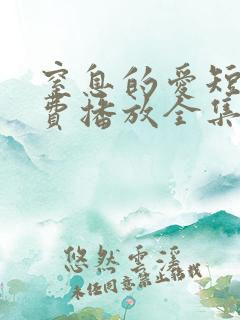 窒息的愛短
費播放全集
悠然雲漾
未经同意禁止搬载